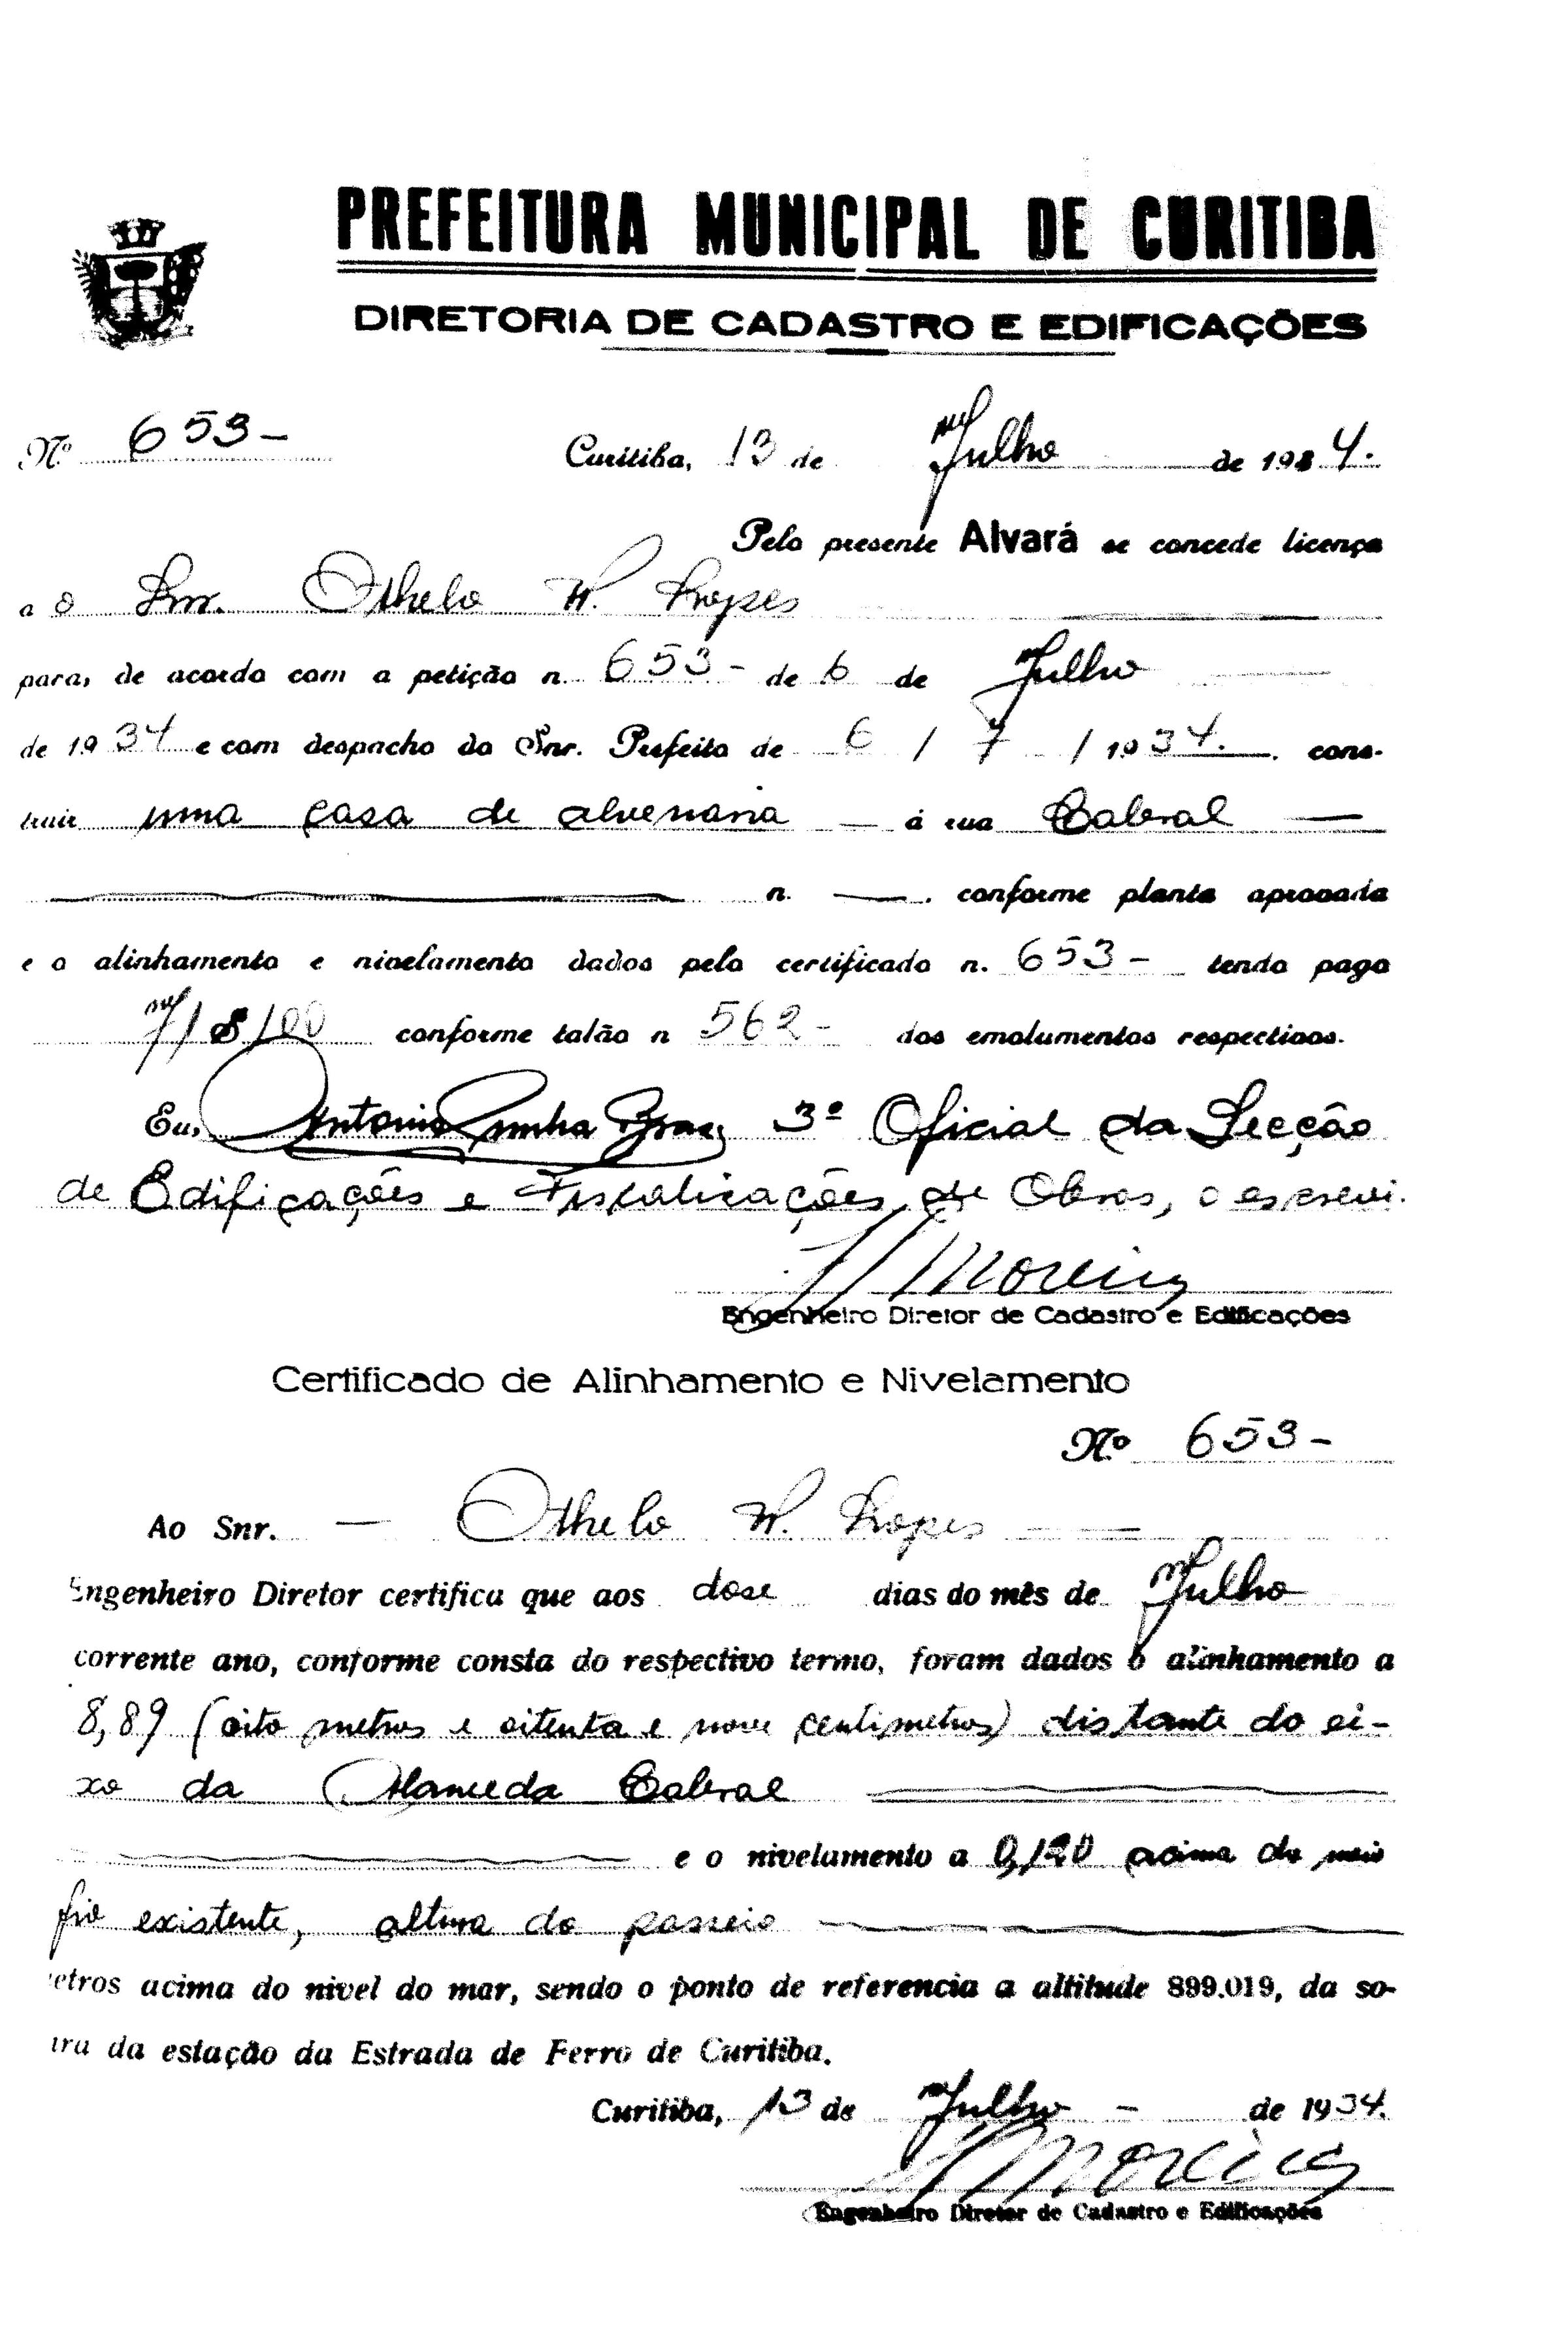 PREFEITURA MUNICIPAL DE CURITIBA
DIRETORIA DE CADASTRO E EDIFICAÇÕES
Nº 653-
Curitiba, 13 de Julho de 1934.
Pelo presente Alvará se concede licença
a o Snr. Othelo W. Lopes
para, de acordo com a petição n. 653- de 6 de Julho
de 1934 e com despacho do Snr. Prefeito de 6 / 7 / 1934. cons-
truir uma casa de alvenaria — á rua Cabral —
n. —. conforme planta aprovada
e o alinhamento e nivelamento dados pelo certificado n. 653- tendo pago
conforme talão n 562- dos emolumentos respectivos.
Eu, Antonio Cunha 3º Oficial da Secção
de Edificações e Fiscalizações de Obras, o escrevi.
Moreira
Engenheiro Diretor de Cadastro e Edificações
Certificado de Alinhamento e Nivelamento
Nº 653-
Ao Snr. — Othelo W. Lopes —
Engenheiro Diretor certifica que aos dose dias do mês de Julho
corrente ano, conforme consta do respectivo termo, foram dados o alinhamento a
8,89 (oito metros e oitenta e nove centimetros) distante do ei-
xo da Alameda Cabral
e o nivelamento a 0,120 acima do meio
fio existente, altura do passeio
etros acima do nivel do mar, sendo o ponto de referencia a altitude 899.019, da so-
ira da estação da Estrada de Ferro de Curitiba.
Curitiba, 13 de Julho - de 1934.
Moreira
Engenheiro Diretor de Cadastro e Edificações